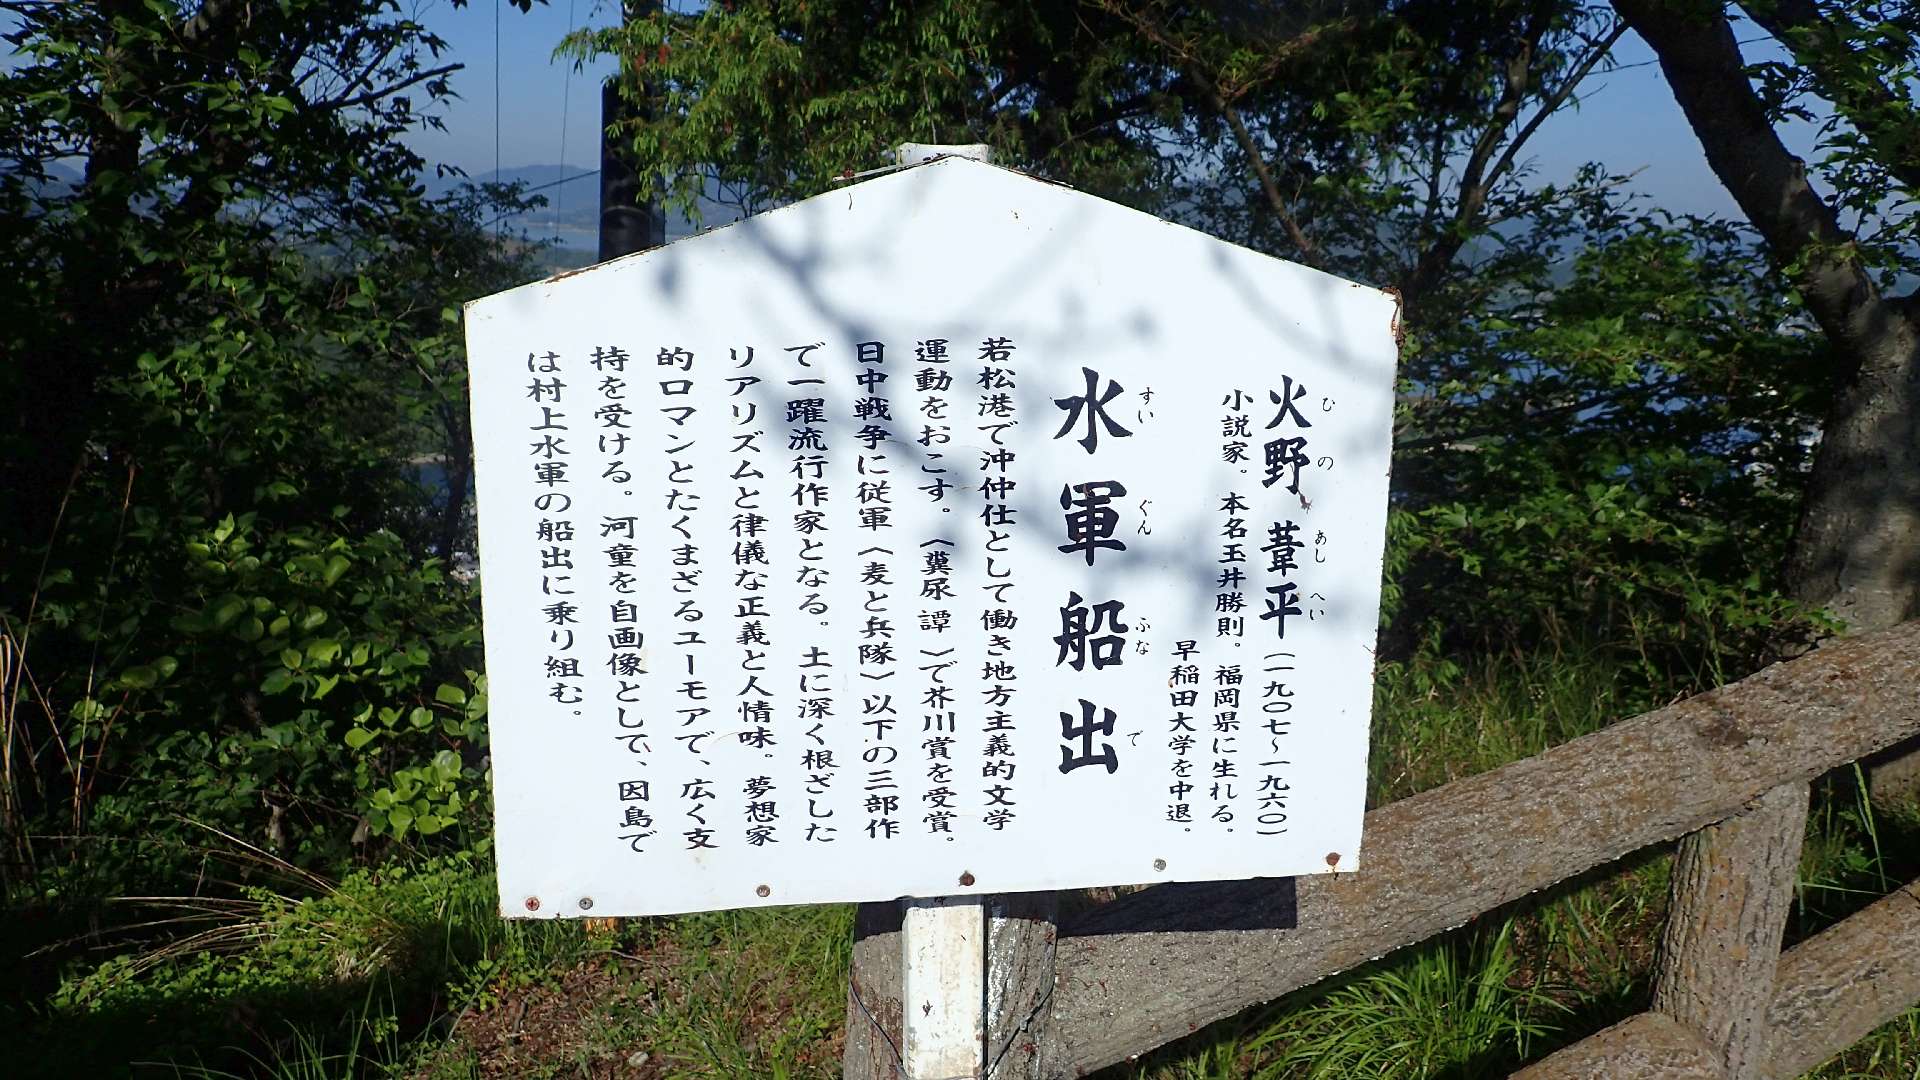 火野 葦平(一九〇七~一九六〇)
ひ の あし へい
小説家。本名玉井勝則。福岡県に生れる。
早稲田大学を中退。
水軍船出
すい ぐん ふな で
若松港で沖仲仕として働き地方主義的文学
運動をおこす。〈糞尿譚〉で芥川賞を受賞。
日中戦争に従軍〈麦と兵隊〉以下の三部作
で一躍流行作家となる。土に深く根ざした
リアリズムと律儀な正義と人情味。夢想家
的ロマンとたくまざるユーモアで、広く支
持を受ける。河童を自画像として、因島で
は村上水軍の船出に乗り組む。